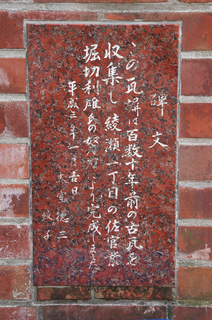 碑文
この瓦塀は百数十年前の古瓦を
収集し綾瀬一丁目の佐官業
堀切利雄氏の努力により完成しました
平成三年一月吉日
徳三